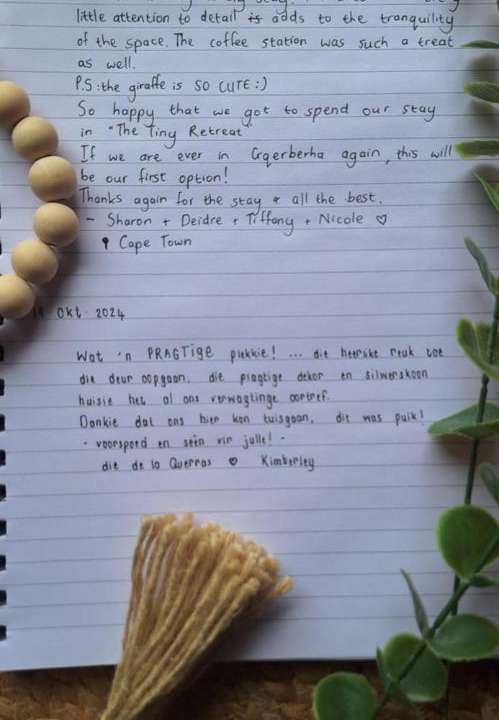 little attention to detail is adds to the tranquility
of the space. The coffee station was such a treat
as well.
P.S: the giraffe is SO CUTE :)
So happy that we got to spend our stay
in "The Tiny Retreat"
If we are ever in Gqerberha again, this will
be our first option!
Thanks again for the stay & all the best.
- Sharon + Deidre + Tiffany + Nicole ♡
Cape Town
Okt. 2024
Wat 'n PRAGTIGE plekkie! ... die heerlike reuk toe
die deur oopgaan, die pragtige dekor en silwerskoon
huisie het al ons verwagtinge oortref.
Dankie dat ons hier kon tuisgaan, dit was puik!
- voorspoed en seën vir julle! -
die de la Querras ♡ Kimberley